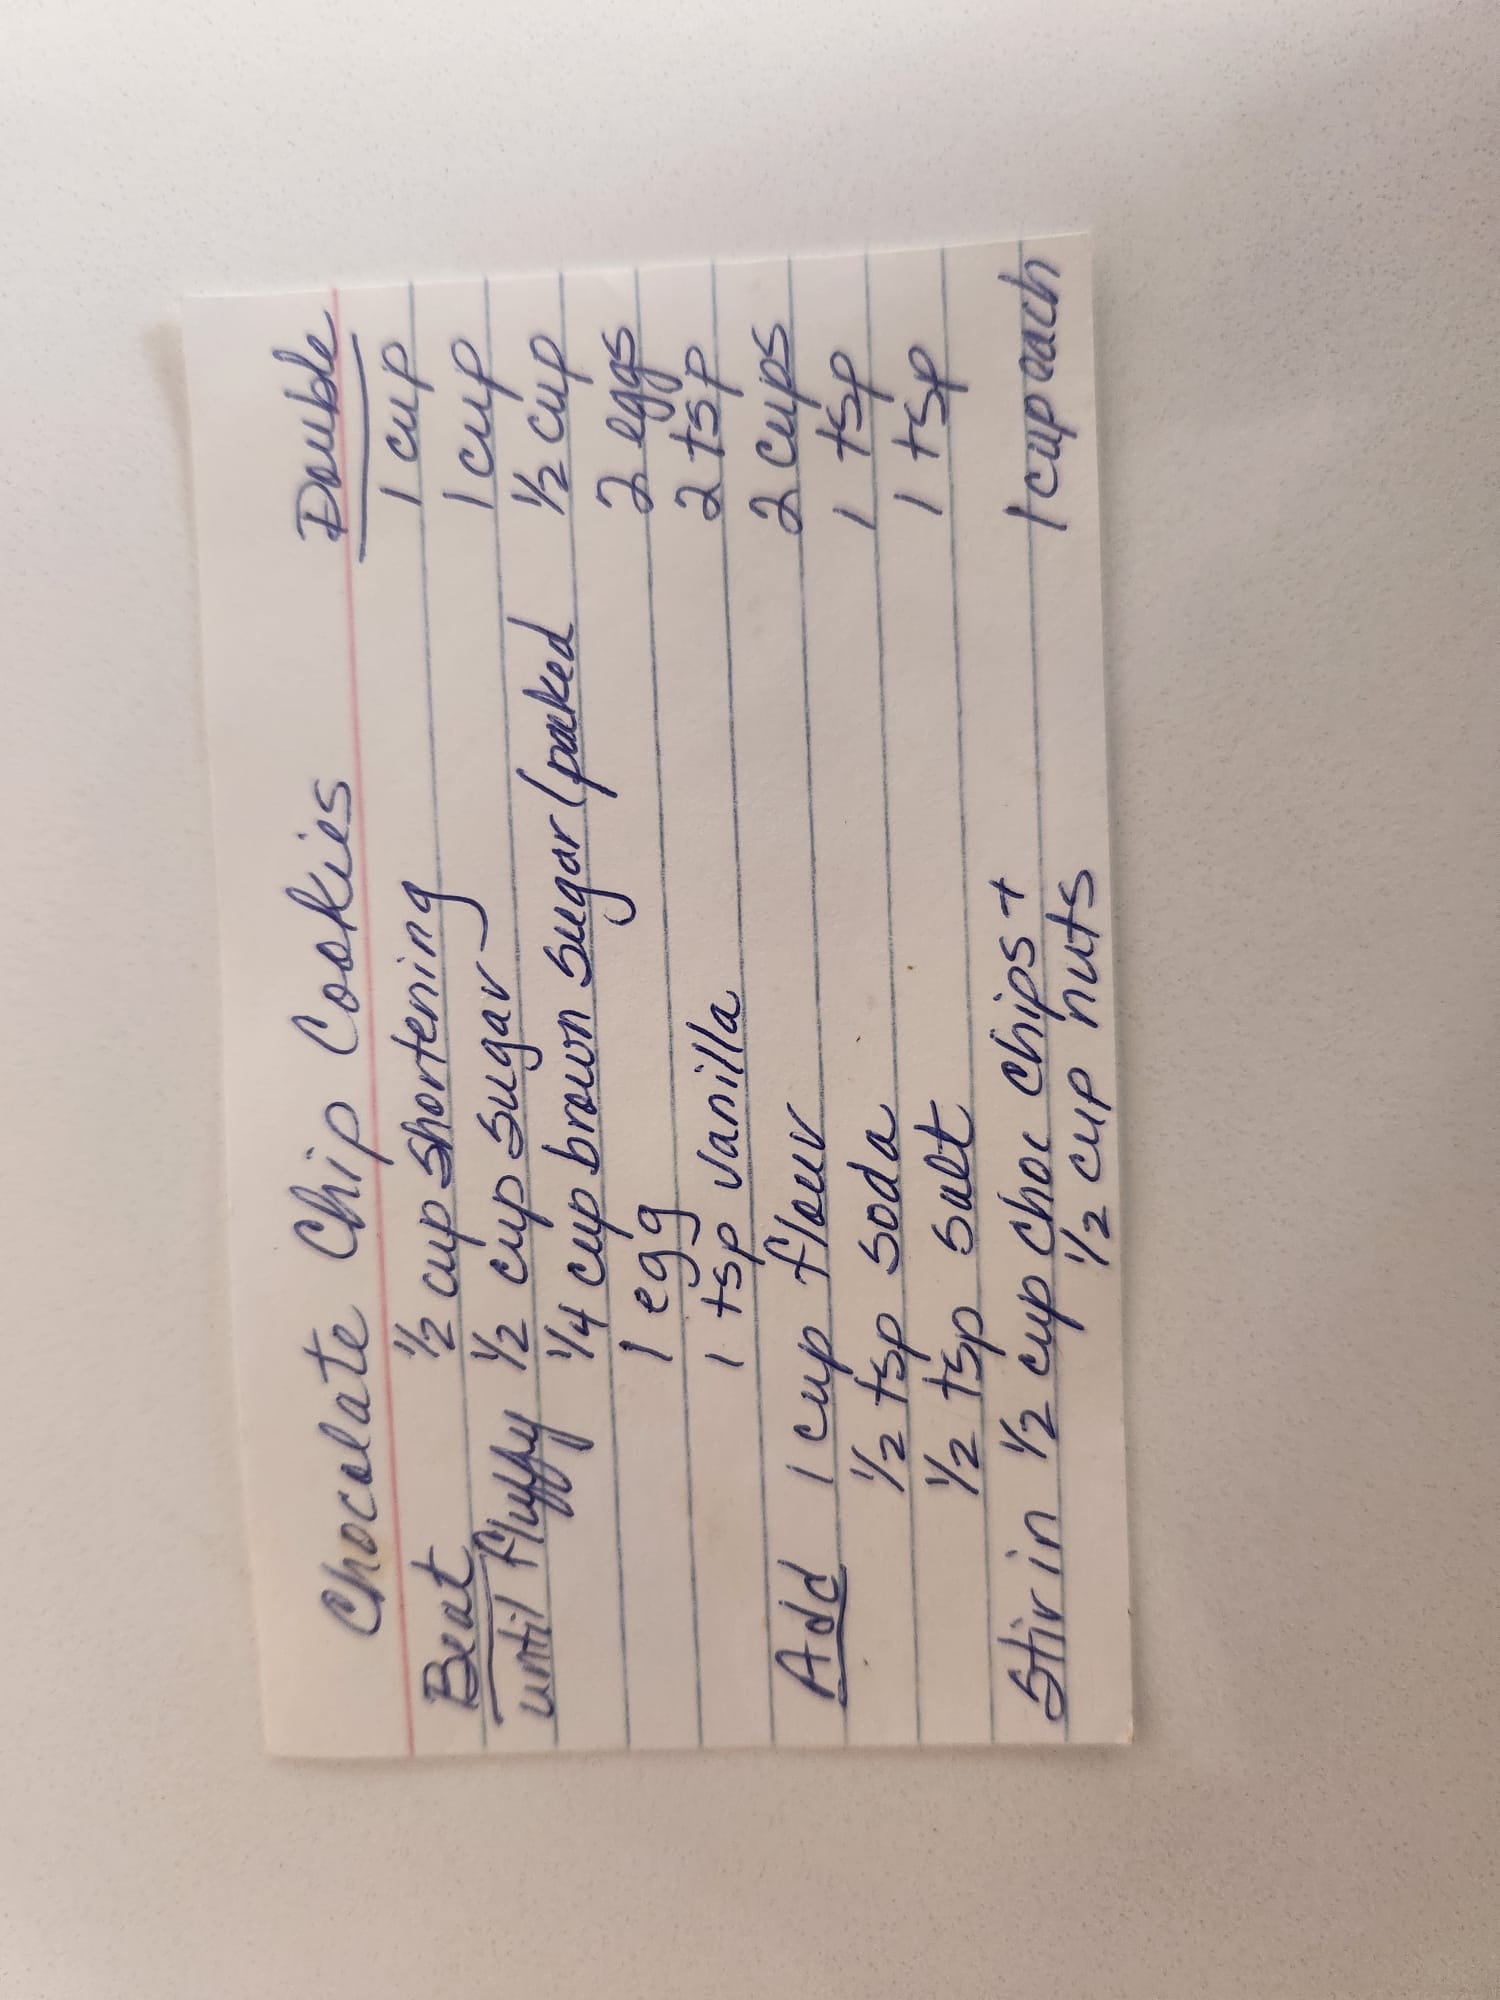 Chocolate Chip Cookies Double
Beat 1/2 cup shortening 1 cup
until fluffy 1/2 cup sugar 1 cup
1/4 cup brown sugar (packed 1/2 cup
1 egg 2 eggs
1 tsp vanilla 2 tsp
Add 1 cup flour 2 cups
1/2 tsp soda 1 tsp
1/2 tsp salt 1 tsp
Stir in 1/2 cup choc chips + 1 cup each
1/2 cup nuts